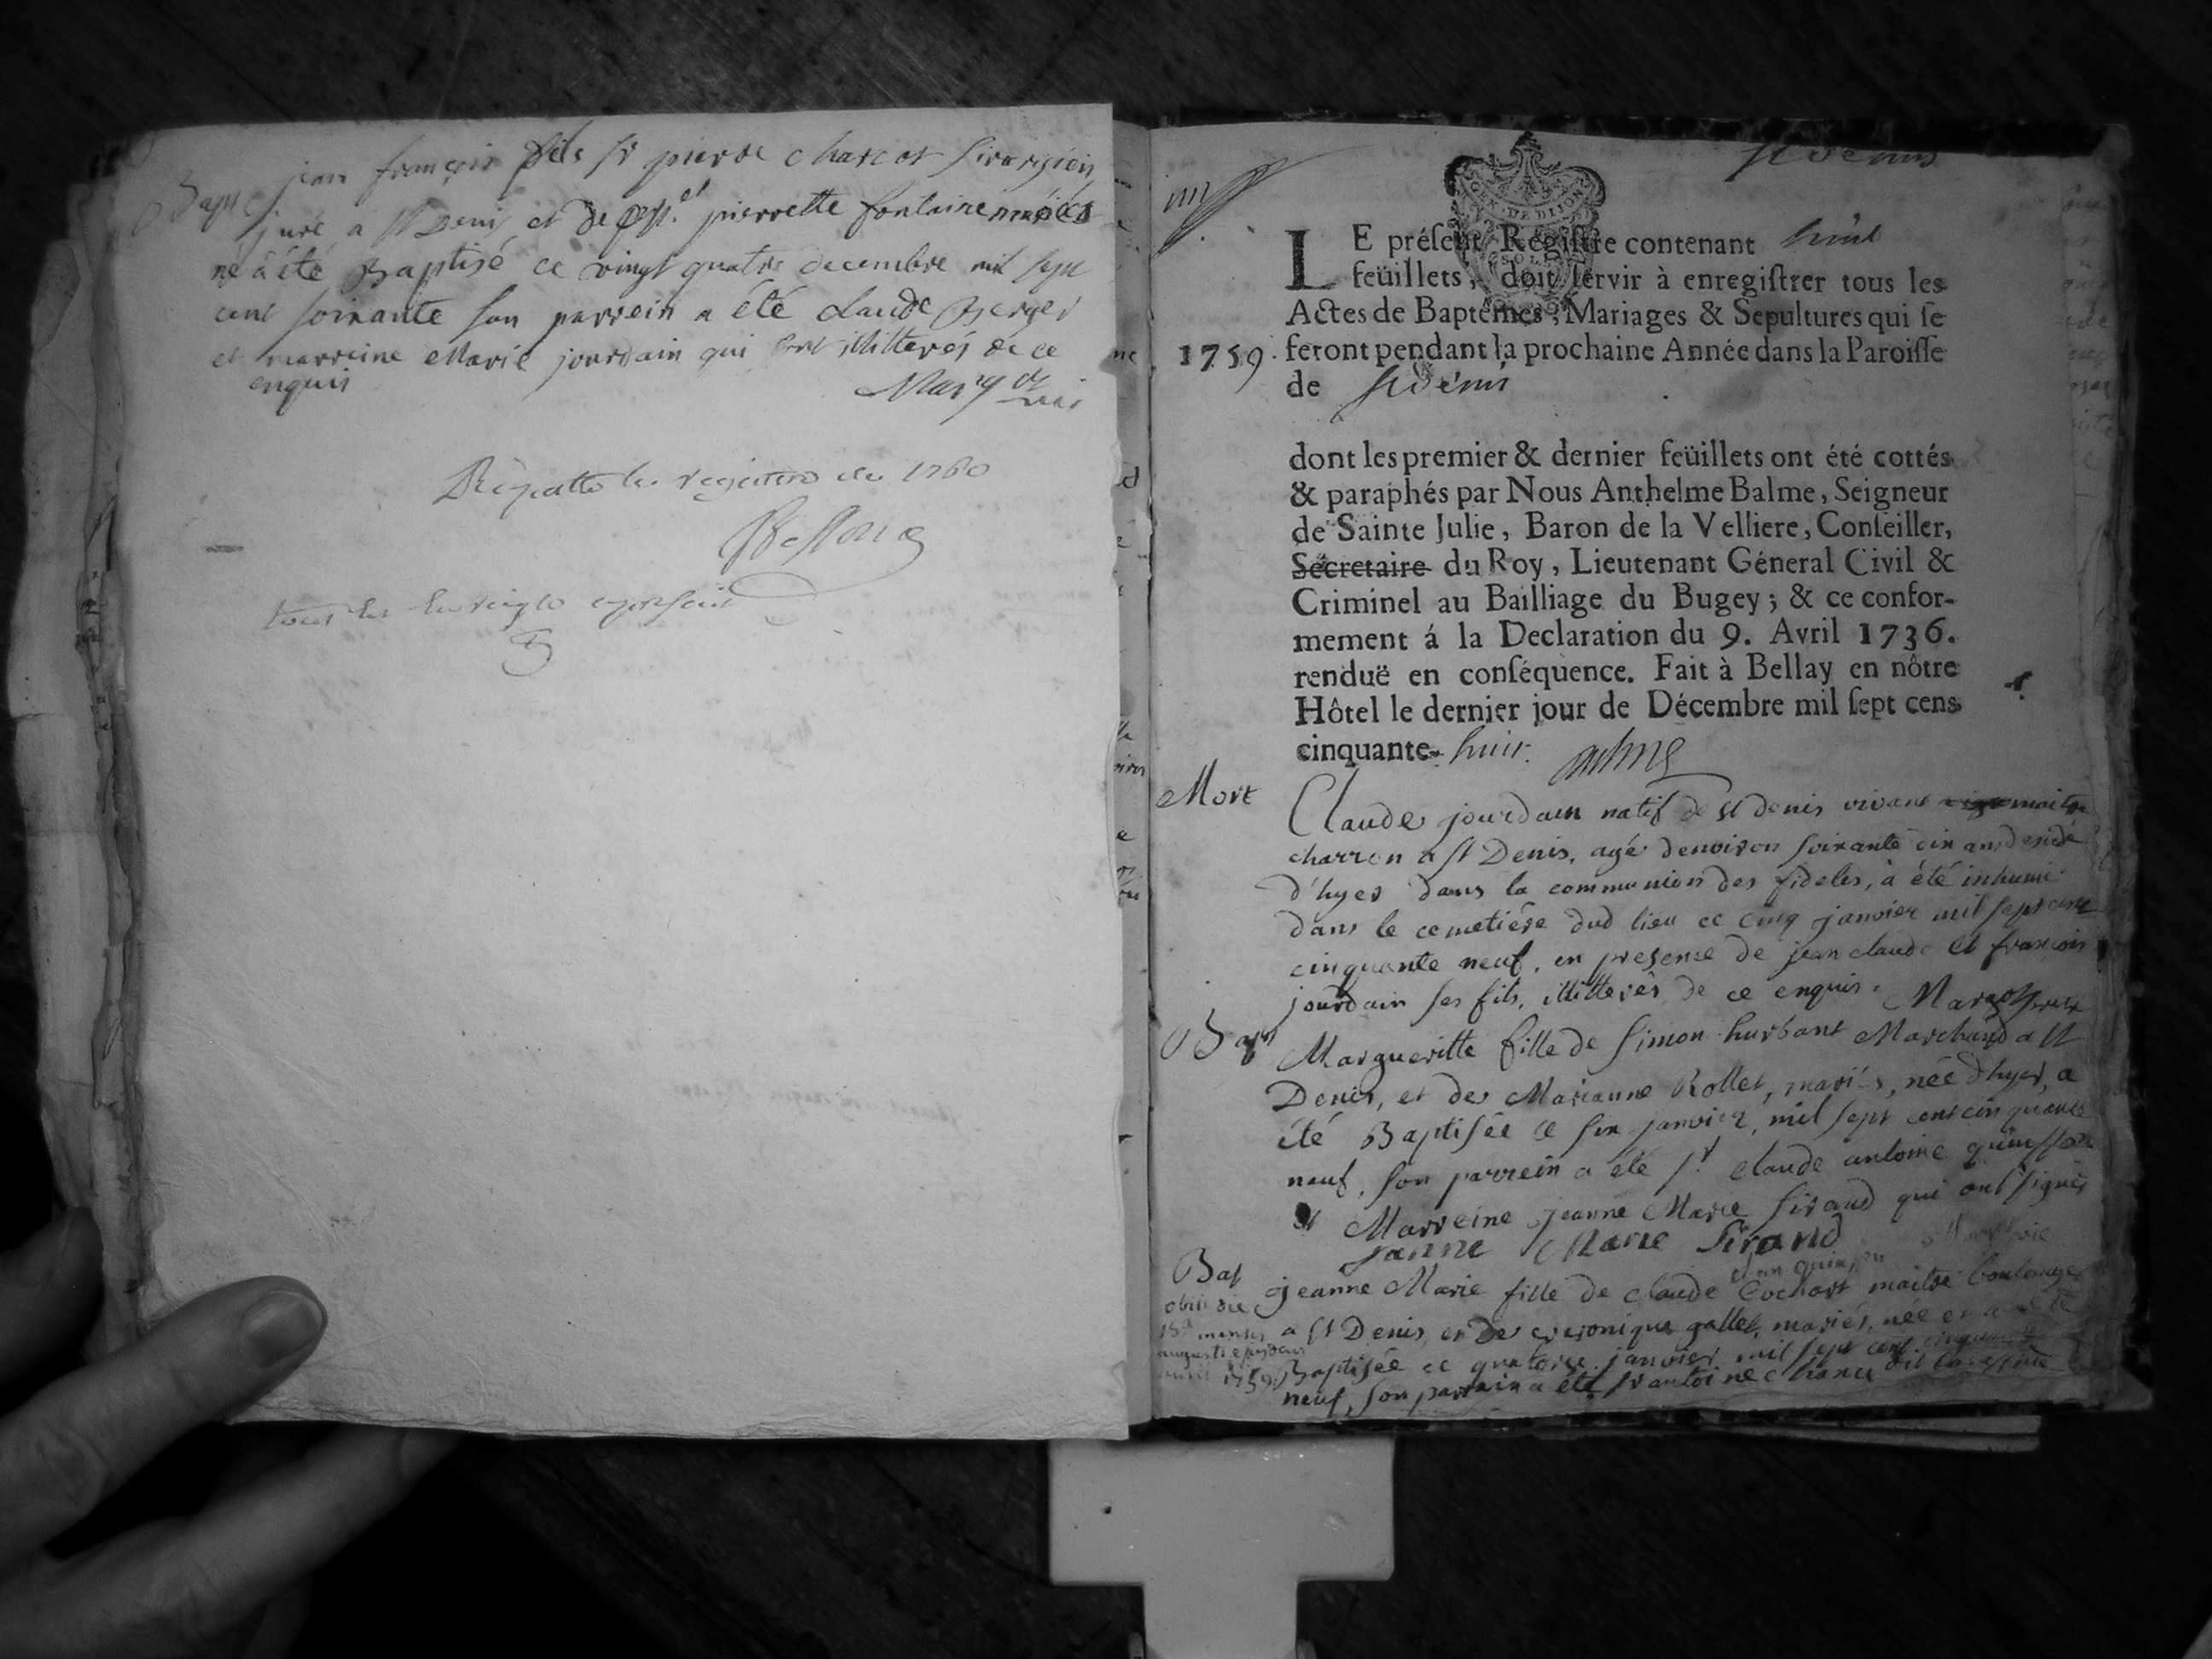 Bapt
jean françois fils sr pierre charcot sirurgien
juré a st Deni et de pierrette fontaine mariés
né a été Baptisé ce vingt quatre decembre mil sept
cent soixante son parrein a été claude Berger
et marreine Marie jourdain qui sont illitterés de ce
enquis
le registre de 1760
st denis
LE préſent Regiſtre contenant huit
feüillets, doit ſervir à enregiſtrer tous les
Actes de Baptêmes, Mariages & Sepultures qui ſe
1759. feront pendant la prochaine Année dans la Paroiſſe
de st denis
dont les premier & dernier feüillets ont été cottés
& paraphés par Nous Anthelme Balme, Seigneur
de Sainte Julie, Baron de la Velliere, Conſeiller,
Secretaire du Roy, Lieutenant Géneral Civil &
Criminel au Bailliage du Bugey; & ce confor-
mement á la Declaration du 9. Avril 1736.
renduë en conſéquence. Fait à Bellay en nôtre
Hôtel le dernier jour de Décembre mil ſept cens
cinquante- huit.
Mort
Claude jourdain natif de st denis vivant maitre
charron a st Denis, agé denviron soixante dix ans decidé
d'hyer dans la communion des fideles, à été inhumé
dans le cemetiére dud lieu ce cinq janvier mil sept cent
cinquante neuf, en presense de jean claude et francois
jourdain ses fils, illitterés de ce enquis.
Bapt
Margueritte fille de simon hurbant Marchand a st
Denis, et de Marianne Rollet, mariés, née d'hyer, a
été Baptisée ce six janvier, mil sept cent cinquante
neuf, son parrein a été sr. claude antoine quinsson
et Marreine jeanne Marie sirand qui ont signés
janne Marie Sirand
Bap
jeanne Marie fille de claude Cochart maitre boulanger
a st Denis, et de veronique gallet, mariés, née et a été
Baptisée ce quatorze janvier mil sept cent cinquante
neuf, son parrain a été sr antoine